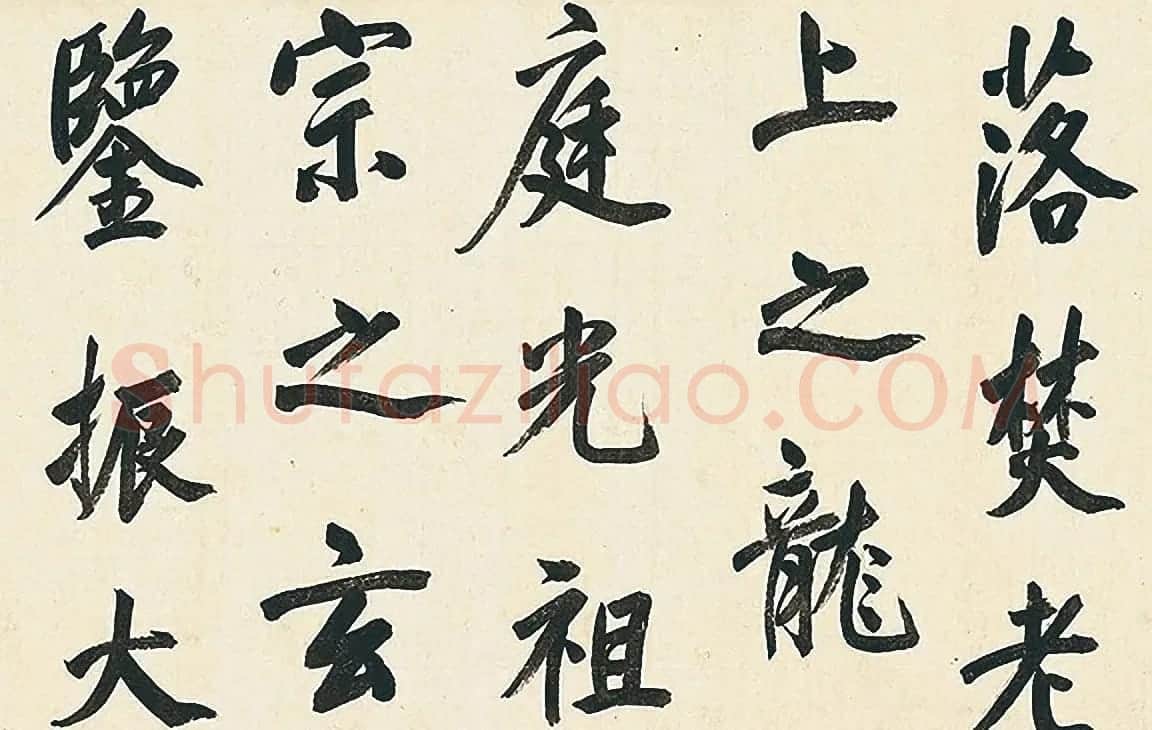 落焚老
上之龍
庭光祖
宗之玄
鑒振大
Shufaziliao.COM